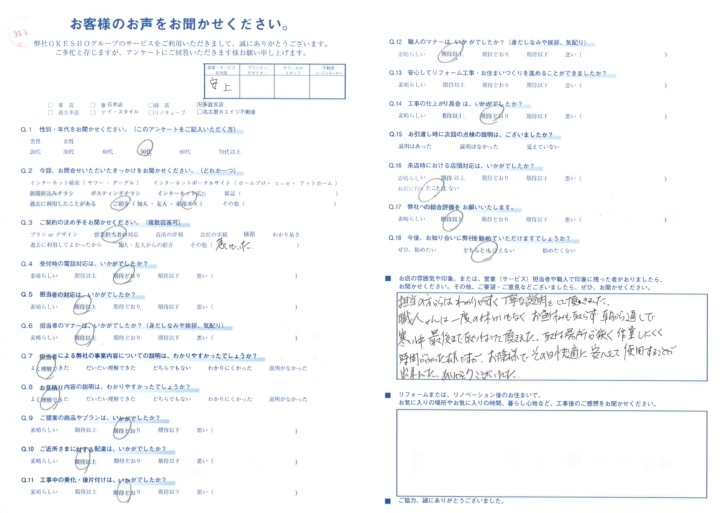 お客様のお声をお聞かせください。
弊社OKESHOグループのサービスをご利用いただきまして、誠にありがとうございます。
ご多忙と存じますが、アンケートにご回答いただきます様お願い申し上げます。
守上
Q.1 性別・年代をお聞かせください。(このアンケートをご記入いただく方)
男性 女性
20代 30代 40代 50代 60代 70代以上
Q.2 今回、お問合せいただいたきっかけをお聞かせください。(どれか一つ)
インターネット検索(ヤフー・グーグル) インターネットポータルサイト(ホームプロ・スーモ・アットホーム)
新聞折込みチラシ ポスティングチラシ 雑誌(
過去に利用したことがある ご紹介(知人・友人・ その他( )
Q.3 ご契約の決め手をお聞かせください。(複数回答可)
プラン or デザイン 営業担当者の対応 近所の評判 会社の実績 価格 わかり易さ
過去に利用してよかったから 知人・友人からの紹介 その他(
Q.4 受付時の電話対応は、いかがでしたか?
素晴らしい 期待以上 期待どおり 期待以下 悪い( )
Q.5 担当者の対応は、いかがでしたか?
素晴らしい 期待以上 期待どおり 期待以下 悪い( )
Q.6 担当者のマナーは、いかがでしたか?(身だしなみや挨拶、気配り)
素晴らしい 期待以上 期待どおり 期待以下 悪い( )
Q.7 担当者による弊社の事業内容についての説明は、わかりやすかったでしょうか?
よく理解できた だいたい理解できた どちらでもない わかりにくかった 説明がなかった
Q.8 お見積り内容の説明は、わかりやすかったでしょうか?
よく理解できた だいたい理解できた どちらでもない わかりにくかった 説明がなかった
Q.9 ご提案の商品やプランは、いかがでしたか?
素晴らしい 期待以上 期待どおり 期待以下 悪い( )
Q.10 ご近所さまに対する配慮は、いかがでしたか?
素晴らしい 期待以上 期待どおり 期待以下 悪い( )
Q.11 工事中の美化・後片付けは、いかがでしたか?
素晴らしい 期待以上 期待どおり 期待以下 悪い( )
Q.12 職人のマナーは、いかがでしたか?(身だしなみや挨拶、気配り)
素晴らしい 期待以上 期待どおり 期待以下 悪い( )
Q.13 安心してリフォーム工事・お住まいづくりを進めることができましたか?
素晴らしい 期待以上 期待どおり 期待以下 悪い( )
Q.14 工事の仕上がり具合は、いかがでしたか?
素晴らしい 期待以上 期待どおり 期待以下 悪い( )
Q.15 お引渡し時に次回の点検の説明は、ございましたか?
説明はあった 説明はなかった 覚えていない
Q.16 来店時における店頭対応は、いかがでしたか?
素晴らしい 期待以上 期待どおり 期待以下 悪い( )
お店に行ったことはない
Q.17 弊社への総合評価をお願いいたします。
素晴らしい 期待以上 期待どおり 期待以下 悪い( )
Q.18 今後、お知り合いに弊社を勧めていただけますでしょうか?
ぜひ、勧めたい どちらとも言えない 勧めたくない
■ お店の雰囲気や印象、または、営業(サービス)担当者や職人で印象に残った者がおりましたら、
お聞かせください。その他、ご要望・ご意見などございましたら、ぜひ、お聞かせください。
担当の方からはわかりやすく丁寧な説明をして頂きました。
職人さんは一度の休けいもなく お昼ねも取らず 朝から通して
寒い中 最後まで取り付けて 場所が狭く 作業しにくく
時間がかかった様ですが、お陰様で その日快適に 使用することが
出来ました。ありがとうございました。
■ リフォームまたは、リノベーション後のお住まいで、
お気に入りの場所やお気に入りの時間、暮らし心地など、工事後のご感想をお聞かせください。
■ ご協力、誠にありがとうございました。